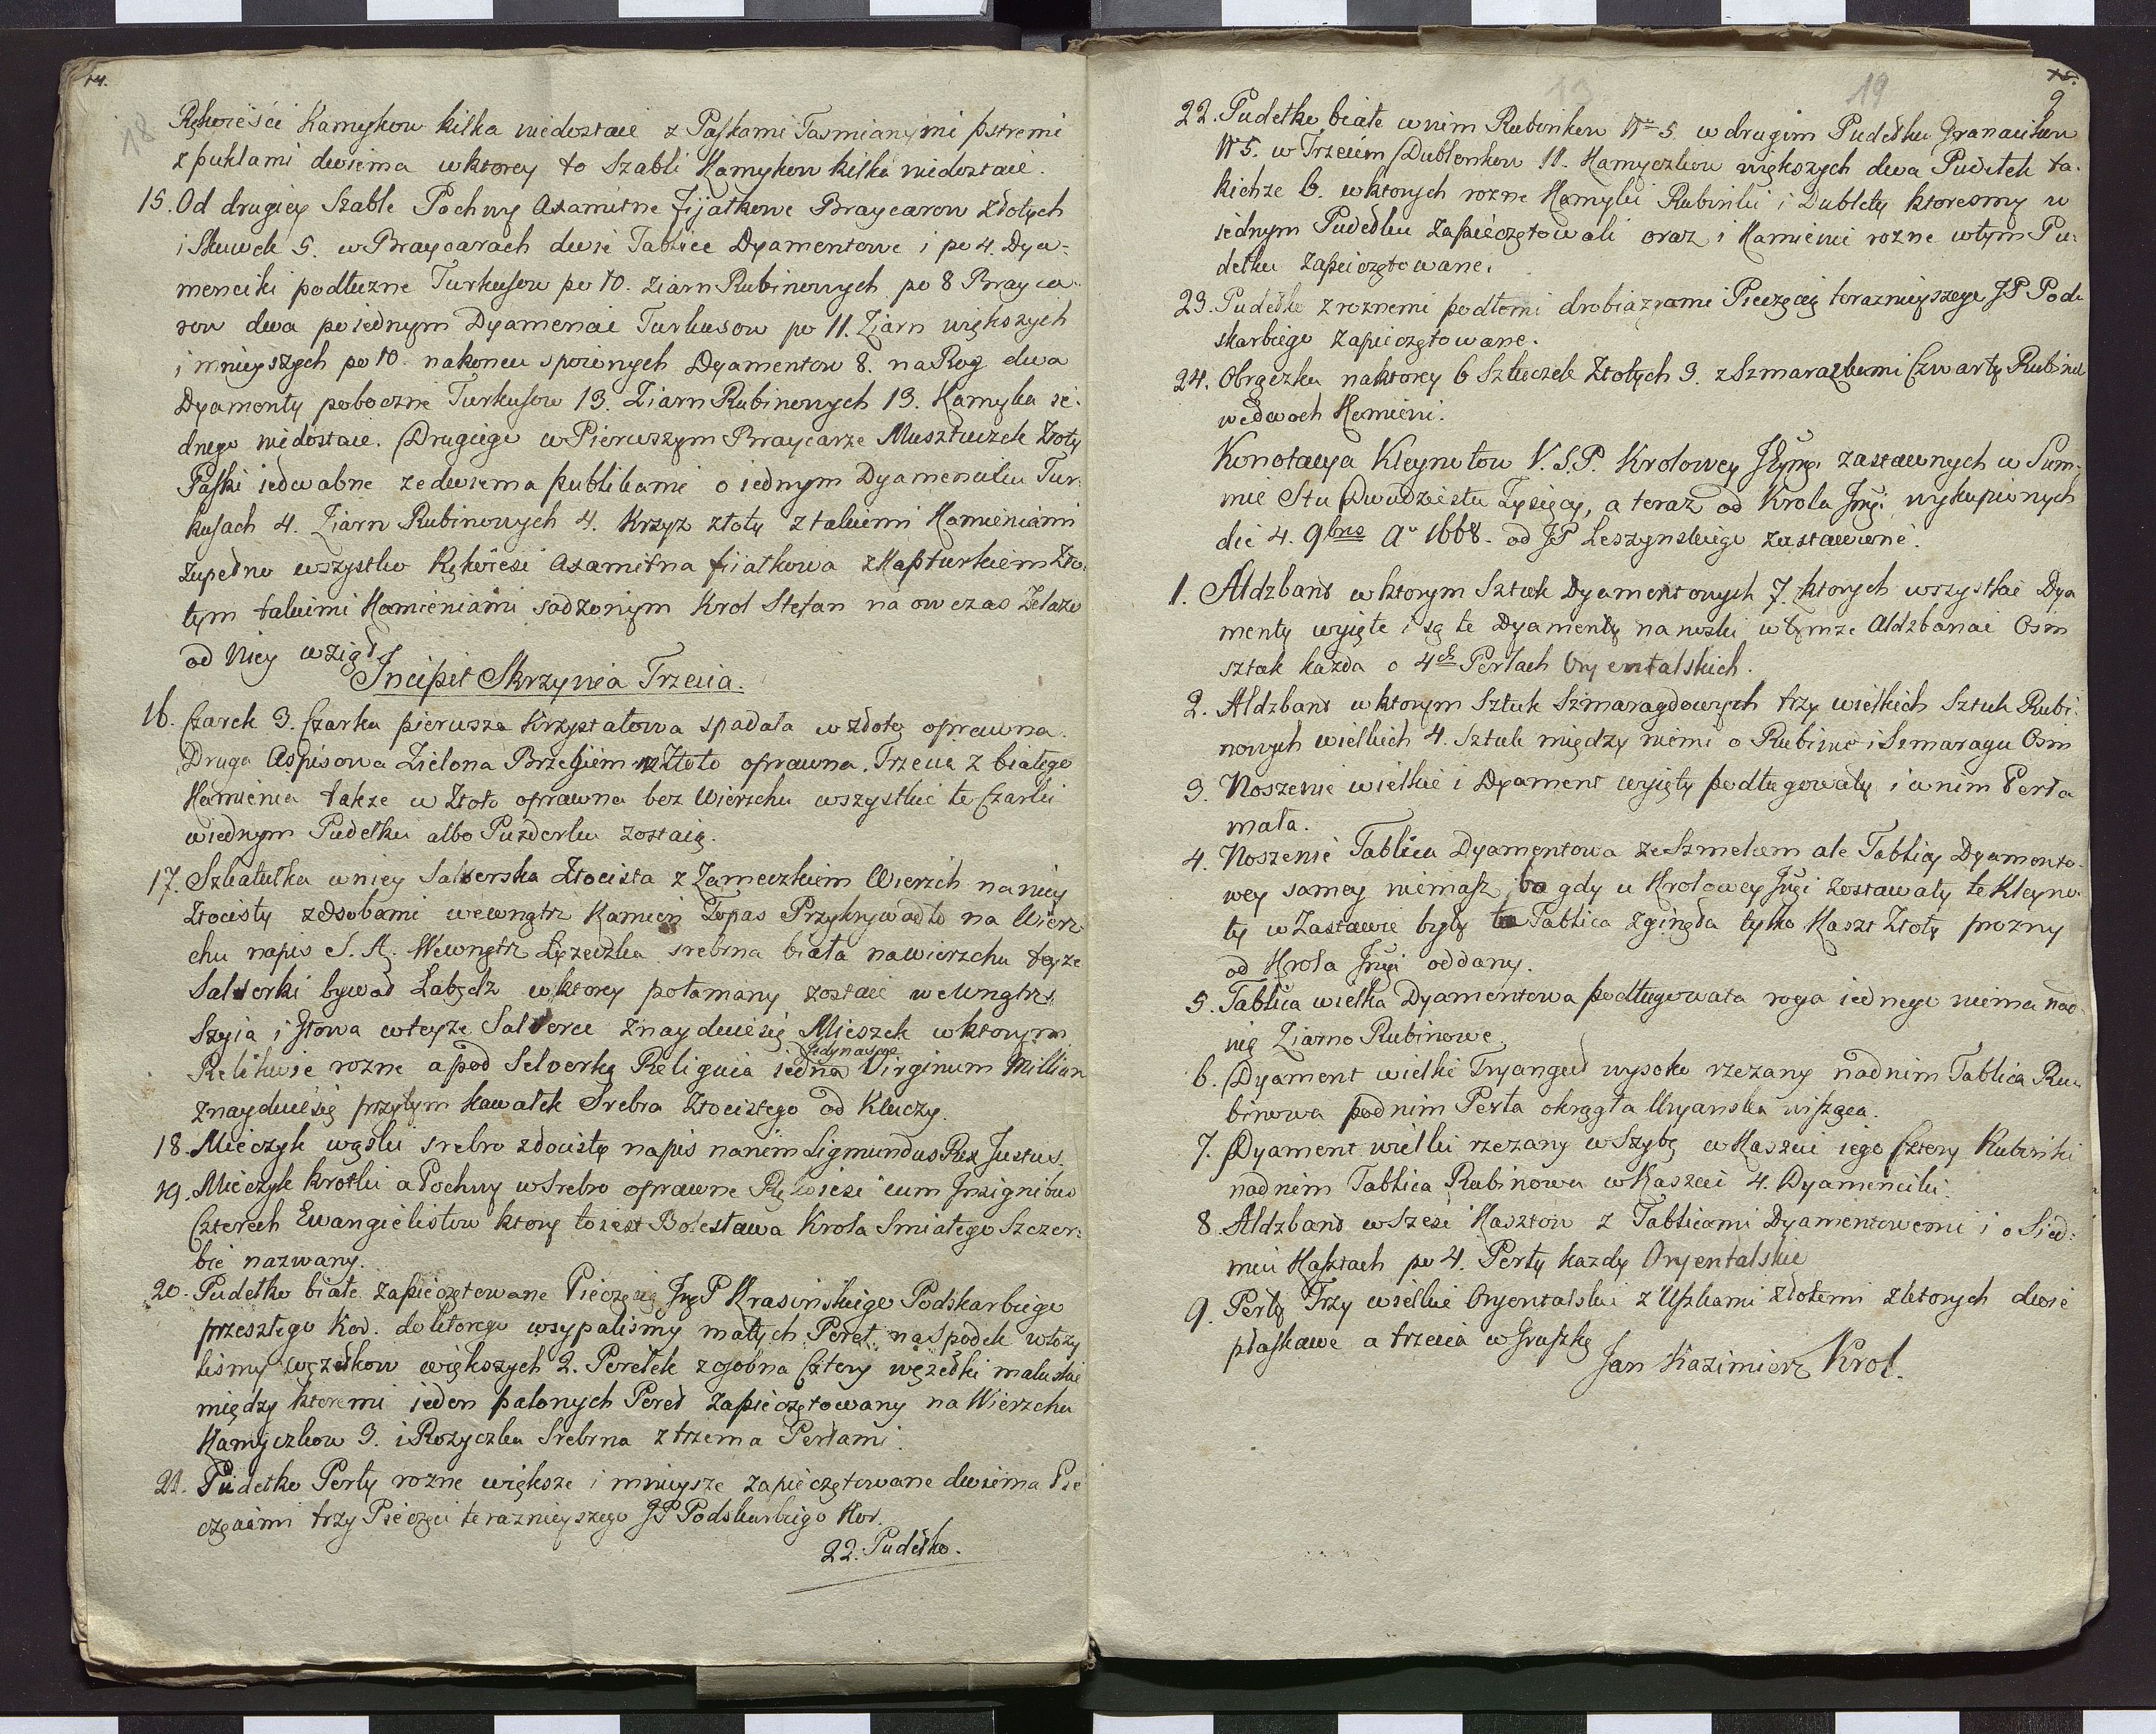 14.
18
Rękoieści Kamykow kilka niedostaie z Paskami Tasmianymi pstremi
z puklami dwiema w ktorey to Szabli Kamykow kilka niedostaie.
15. Od drugiey Szable Pochwy Axamitne fijałkowe Braycarow Złotych
i Skuwek 5. w Braycarach dwie Tablice Dyamentowe i po 4. Dya-
menciki podłuzne Turkusow po 10. Ziarn Rubinowych po 8 Brayca-
row dwa po iednym Dyamencie Turkusow po 11. Ziarn większych
i mnieyszych po 10. nakoncu spoionych Dyamentow 8. na Rog dwa
Dyamenty poboczne Turkusow 13. Ziarn Rubinowych 13. Kamyka ie-
dnego niedostaie. Drugiego w Pierwszym Braycarze Musztuczek Złoty
Paski iedwabne zedwiema publikami o iednym Dyamenciku Tur-
kusach 4. Ziarn Rubinowych 4. Krzyz złoty z takiemi Kamieniami
zupełno wszystko Rękoiesć Axamitna fiiałkowa z Kapturkiem Zło-
tym takiemi Kamieniami sadzonym Krol Stefan na on czas Zelazo
od Niey wziął.
Incipit Skrzynia Trzecia.
16. Czarek 3. Czarka pierwsza Krzyształowa spadała w złotę oprawna.
Druga Aspisowa Zielona Brzegiem w Złoto oprawna. Trzecia z białego
Kamienia takze w Złoto oprawna bez Wierzchu wszystkie te Czarki
w iednym Pudełku albo Puzderku zostaią.
17. Szkatułka w niey Salserka Złocista z Zameczkiem Wierzch na niey
Złocisty z Osobami wewnątrz Kamień Topas Przykrywadło na Wierz-
chu napis S. A. Wewnątrz Łyzeczka srebrna biała na wierzchu teyze
Salserki bywał Łabędz w ktorey połamany zostaie wewnątrz
Szyja i Głowa w teyze Salserce znayduie się Mieszek w ktorym
Relikwie rozne a pod Selverką Religuia iedna Jedynaście Virginum Millium
znayduie się przytym kawałek Srebra Złocistego od Kluczy.
18. Mieczyk wąski srebro złociste napis na nim Sigmundus Rex Justus.
19. Mieczyk krotki a Pochwy w Srebro oprawne Rękoieść cum Insignibus
Czterech Ewangielistow ktory to iest Bolesława Krola Smiałego Szczer-
bie nazwany.
20. Pudełko białe zapieczętowane Pieczęcią Jmę P Krasińskiego Podskarbiego
przeszłego Kor. do ktorego wsypalismy małych Pereł. na Spodek włozy-
lismy węzełkow większych 2. Perełek zosobna Cztery węzełki maluskie
między ktoremi ieden palonych Pereł zapieczętowany na Wierzchu
Kamyczkow 3. i Rozyczka Srebrna z trzema Perłami.
21. Pudełko Perły rozne większe i mnieysze zapieczętowane dwiema Pie-
częciami trzy Pieczęci terazniejszego JP Podskarbiego Kor.
22. Pudełko.
13
19
9
22. Pudełko białe w nim Rubinkow No 5. w drugim Pudełku Granacikow
No 5. w Trzecim Dublonkow 11. Kamyczkow większych dwa Pudełek ta-
kichze 6. w ktorych rozne Kamyki Rubinki i Dublety ktoresmy w
iednym Pudełku zapieczętowali oraz i Kamienie rozne w tym Pu-
dełku zapieczętowane.
23. Pudełko z roznemi podłemi drobiazgami Pieczęcią terazniejszego JP Pod-
skarbiego zapieczętowane.
24. Obrączka na ktorey 6 Sztuczek Złotych 3. z Szmaragkami Czwarty Rubinek
we dwoch Kamieni.
Konotacya Kleynotow N.S.P. Krolowey Jeymci zastawnych w Sum-
mie Stu Dwudziestu Tysięcy, a teraz od Krola Jmci wykupionych
die 4. 9bris Ao 1668. od JP Leszynskiego zastawione.
1. Aldzband w ktorym Sztuk Dyamentowych 7. ktorych wszystkie Dya-
menty wyięte i są te Dyamenty na noski w tymze Aldzbancie Osm
sztuk kazda o 4ch Perłach Oryentalskich.
2. Aldzband w ktorym Sztuk Szmaragdowych trzy wielkich Sztuk Rubi-
nowych wielkich 4. Sztuk między niemi o Rubinie i Szmaragu Osm
3. Noszenie wielkie i Dyament wyięty podługowaty i w nim Perła
mała.
4. Noszenie Tablica Dyamentowa ze Szmelcem ale Tablicy Dyamento-
wey samey niemasz bo gdy u Krolowey Jmci zostawały te Kleyno-
ty w Zastawie były ta Tablica zginęła tylko Kaszt Złoty prozny
od Krola Jmci oddany.
5. Tablica wielka Dyamentowa podługowata roga iednego niema nad
nią Ziarno Rubinowe.
6. Dyament wielki Tryanguł wysoko rzezany nad nim Tablica Ru-
binowa pod nim Perła okrągła Uryanska wisząca.
7. Dyament wielki rzezany w Szybę w Kaszcie iego Cztery Rubinki
nad nim Tablica Rubinowa w Kaszcie 4. Dyamenciki.
8. Aldzband w Szesć Kasztow z Tablicami Dyamentowemi i o Sied-
miu Kasztach po 4. Perły kazdy Oryentalskie
9. Perły Trzy wielkie Oryentalski z Uszkami złotemi z ktorych dwie
płaskawe a trzecia w Gruszkę
Jan Kazimierz Krol.